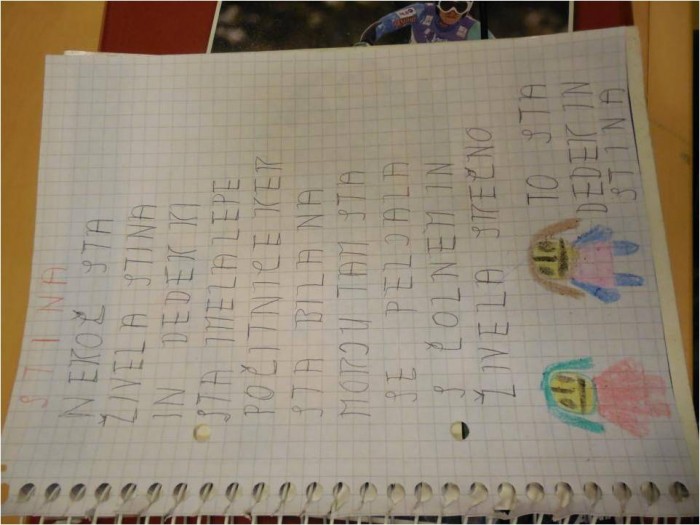 STINA
NEKOČ STA
ŽIVELA STINA
IN DEDEK KI
STA IMELA LEPE
POČITNICE KER
STA BILA NA
MORJU TAM STA
SE PELJALA
S ČOLNEM IN
ŽIVELA SREČNO
TO STA
DEDEK IN
STINA